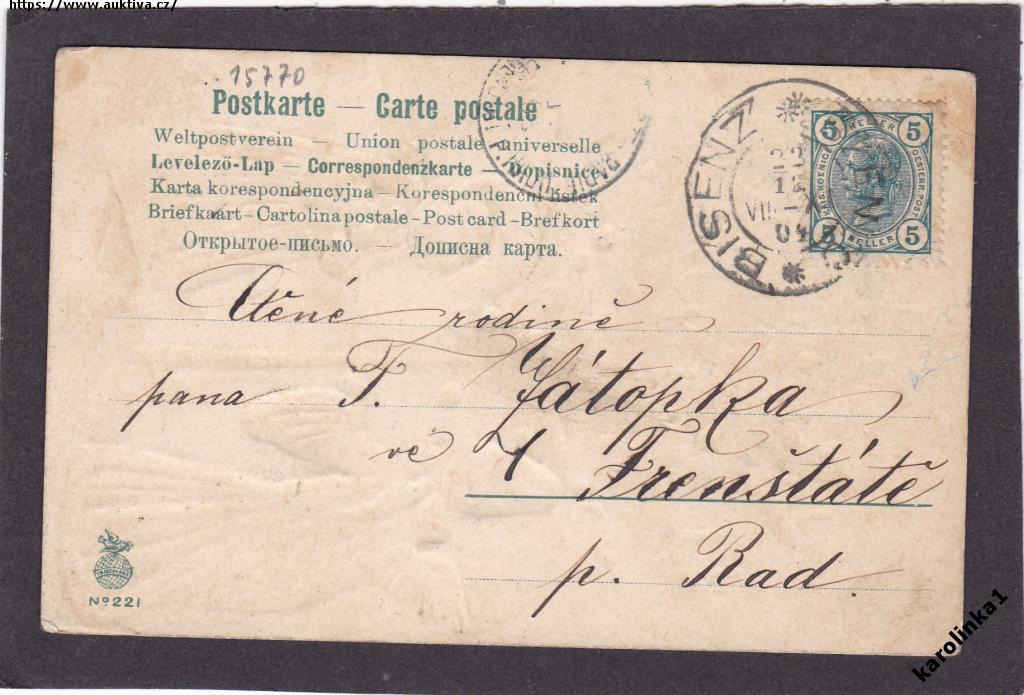 https://www.auktiva.cz/
15770
Postkarte — Carte postale
Weltpostverein — Union postale universelle
Levelező-Lap — Correspondenzkarte — Dopisnice
Karta korespondencyjna — Korespondenčni listek
Briefkaart - Cartolina postale - Post card - Brefkort
Открытое-письмо. — Дописна карта.
BISENZ
5 HELLER 5
5 HELLER 5
Ctěné rodině
pana F. Zátopka
ve Frenštátě
p. Rad.
No 221
karolinka1